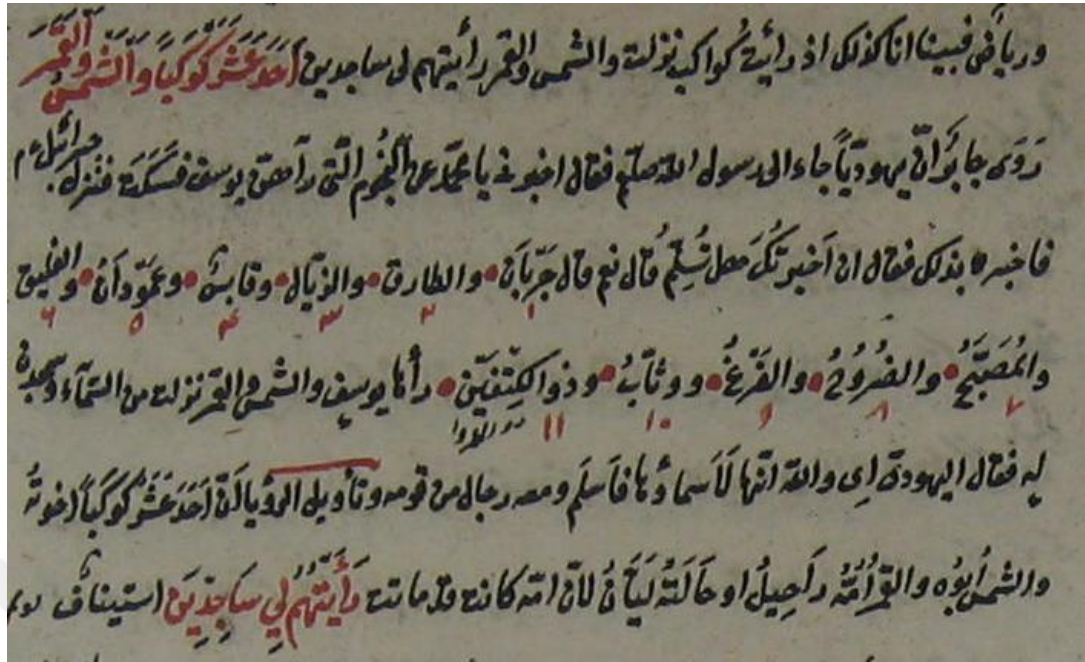 ورياض فبينا انا كذلك اذ رأيتُ كواكب نزلت والشمس والقمر رأيتهم لى ساجدين اَحَدَ عَشَرَ كَوْكَبًا وَالشَّمْسَ وَالْقَمَرَ
رَوَى جابر اَنّ يهوديّاً جاء الى رسول اللّه صلعم فقال اخبرنى يا محمّد عن النّجوم الّتى رآهنّ يوسف فسكت فنزل جبرائيل ء م
فاخبره بذلك فقال ان اَخبرتُكَ هل تُسْلِمُ قال نعم قال جَرَّبَان • والطارق • والذيّال • وقابس • وعَمّودَان • والفليق
١ ٢ ٣ ۴ ٥ ٦
والمُصَبَّحُ • والضُرُوحُ • والفَرْغُ • ووثّابُ • وذو الكِتْفَيْن • رأها يوسف والشمس والقمر نزلت من السّماء وسجدن
٧ ٨ ٩ ١٠ ١١
له فقال اليهودىّ اِى واللّه انّها لَاَسماؤها فاَسلَم ومعه رجال من قومه وتأويل الرؤيا لانّ اَحَدَ عَشَرَ كَوْكَباً اخوتُهُ
والشمسُ اَبُوُه والقمر اُمُّهُ رَاحِيلُ او خَالَتُهُ لَيَّانُ لانّ امّه كانت قد ماتت رَأَيْتُهُمْ لِي سَاجِدِينَ استيناف